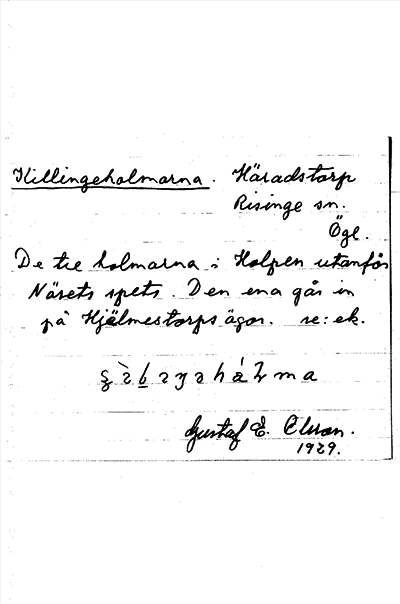 Killingeholmarna. Häradstorp
Risinge sn.
Ögl.
De tre holmarna i Holpen utanför
Näsets spets. Den ena går in
på Hjälmestorps ägor. se: ek.
Gustaf E.
1929.